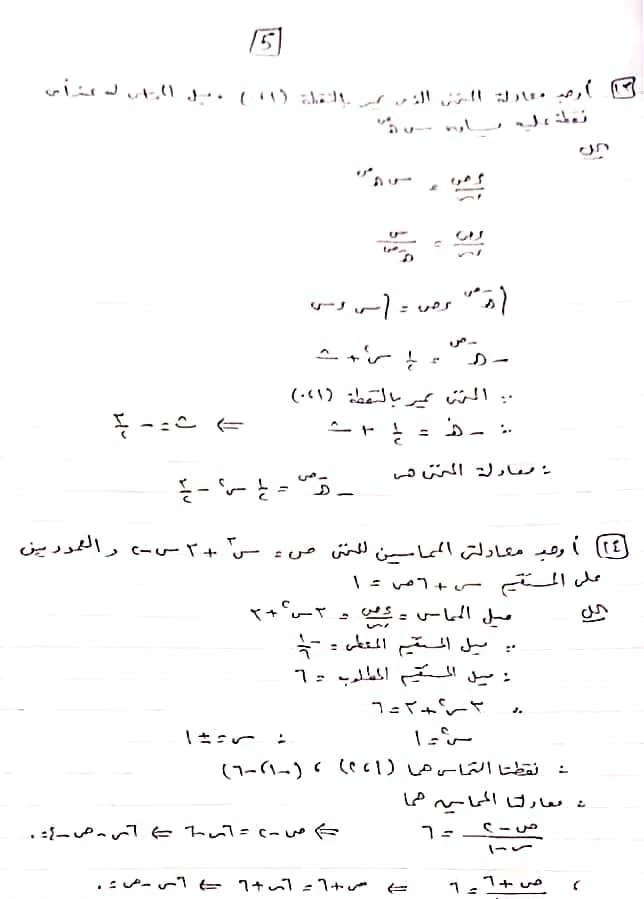 5
٢٣ أوجد معادلة المنحنى الذى يمر بالنقطة (٠،١) وميل المماس له عند أى
نقطة عليه يساوى س هـ^ص
الحل
ءص/ءس = س هـ^ص
ءص/ءس = س/هـ^ص
∫ هـ^-ص ءص = ∫ س ءس
- هـ^-ص = ١/٢ س^٢ + ث
∵ المنحنى يمر بالنقطة (٠،١)
∴ - هـ^٠ = ١/٢ + ث ⇐ ث = - ٣/٢
∴ معادلة المنحنى هى
- هـ^-ص = ١/٢ س^٢ - ٣/٢
٢٤ أوجد معادلتى المماسين للمنحنى ص = س^٣ + ٣س - ٢ والعموديين
على المستقيم س + ٦ص = ١
الحل
ميل المماس = ءص/ءس = ٣س^٢ + ٣
∵ ميل المستقيم المعطى = -١/٦
∴ ميل المستقيم المطلوب = ٦
∴ ٣س^٢ + ٣ = ٦
س^٢ = ١ ∴ س = ± ١
∴ نقطتا التماس هما (٢،١) ، (-١،-٦)
∴ معادلتا المماسين هما
ص-٢/س-١ = ٦ ⇐ ص-٢ = ٦س-٦ ⇐ ٦س-ص-٤=٠
، ص+٦ = ٦ ⇐ ص+٦ = ٦س+٦ ⇐ ٦س-ص=٠